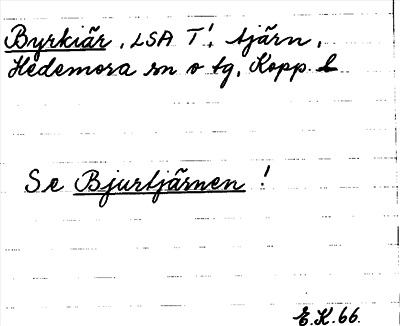 Byrkiär, LSA T', tjärn,
Hedemora sn o tg, Kopp. l
Se Bjurtjärnen !
E.K.66.